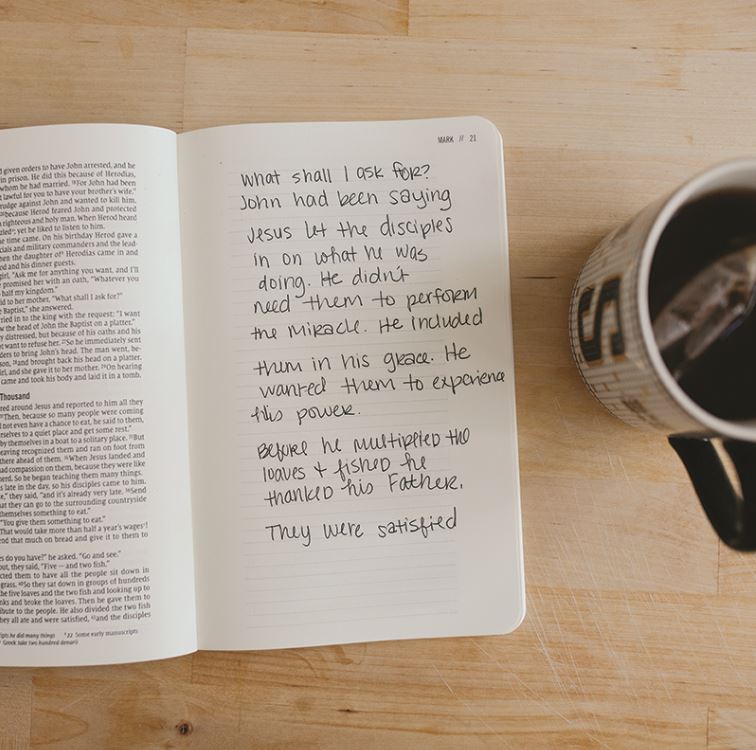 given orders to have John arrested, and he
in prison. He did this because of Herodias,
whom he had married. ¹⁸For John had been
lawful for you to have your brother's wife."
rudge against John and wanted to kill him,
²⁰because Herod feared John and protected
righteous and holy man. When Herod heard
zled; yet he liked to listen to him.
e time came. On his birthday Herod gave a
cials and military commanders and the lead-
hen the daughter of Herodias came in and
od and his dinner guests.
girl, "Ask me for anything you want, and I'll
promised her with an oath, "Whatever you
half my kingdom."
id to her mother, "What shall I ask for?"
e Baptist," she answered.
rried in to the king with the request: "I want
w the head of John the Baptist on a platter."
y distressed, but because of his oaths and his
t want to refuse her. ²⁷So he immediately sent
ders to bring John's head. The man went, be-
son, ²⁸and brought back his head on a platter.
irl, and she gave it to her mother. ²⁹On hearing
came and took his body and laid it in a tomb.
Thousand
red around Jesus and reported to him all they
³¹Then, because so many people were coming
d not even have a chance to eat, he said to them,
rselves to a quiet place and get some rest."
by themselves in a boat to a solitary place. ³³But
eaving recognized them and ran on foot from
there ahead of them. ³⁴When Jesus landed and
ad compassion on them, because they were like
herd. So he began teaching them many things.
s late in the day, so his disciples came to him.
e," they said, "and it's already very late. ³⁶Send
at they can go to the surrounding countryside
themselves something to eat."
"You give them something to eat."
"That would take more than half a year's wages!
end that much on bread and give it to them to
es do you have?" he asked. "Go and see."
out, they said, "Five — and two fish."
cted them to have all the people sit down in
grass. ⁴⁰So they sat down in groups of hundreds
the five loaves and the two fish and looking up to
nks and broke the loaves. Then he gave them to
ibute to the people. He also divided the two fish
hey all ate and were satisfied, ⁴³and the disciples
ripts he did many things 22 Some early manuscripts
Greek take two hundred denarii
MARK // 21
What shall I ask for?
John had been saying
Jesus let the disciples
in on what he was
doing. He didn't
need them to perform
the miracle. He included
them in his grace. He
wanted them to experience
this power.
Before he multiplied the
loaves + fished he
thanked his Father.
They were satisfied
S